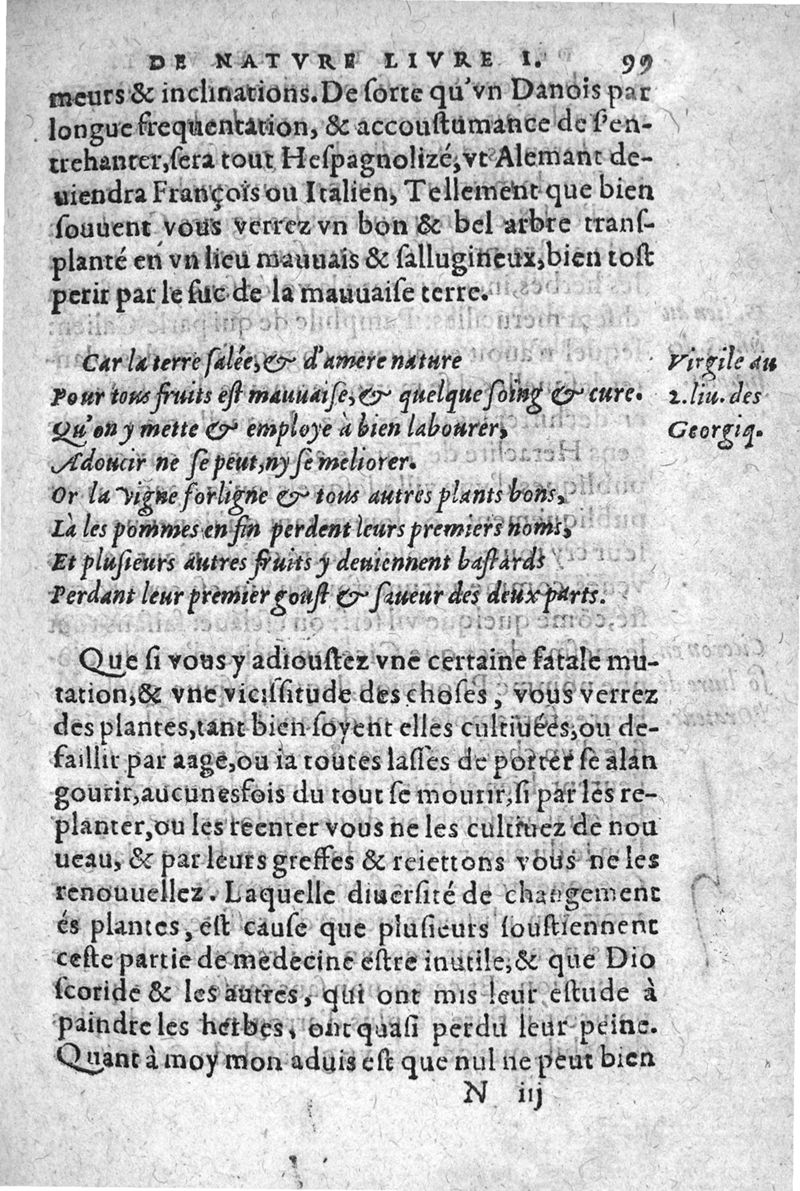 DE NATVRE LIVRE I. 99
meurs & inclinations. De ſorte qu'vn Danois par
longue frequentation, & accouſtumance de ſ'en-
trehanter, ſera tout Heſpagnolizé, vt Alemant de-
uiendra François ou Italien, Tellement que bien
ſouuent vous verrez vn bon & bel arbre tranſ-
planté en vn lieu mauuais & ſallugineux, bien toſt
perir par le ſuc de la mauuaiſe terre.
Car la terre ſalée, & d'amere nature
Pour tous fruits eſt mauuaiſe, & quelque ſoing & cure.
Qu'on y mette & employe à bien labourer,
Adoucir ne ſe peut, ny ſe meliorer.
Or la vigne forligne & tous autres plants bons,
Là les pommes en fin perdent leurs premiers noms,
Et pluſieurs autres fruits y deuiennent baſtards
Perdant leur premier gouſt & ſaueur des deux parts.
Virgile au
2. liu. des
Georgiq.
Que ſi vous y adiouſtez vne certaine fatale mu-
tation, & vne viciſſitude des choſes, vous verrez
des plantes, tant bien ſoyent elles cultiuées, ou de-
faillir par aage, ou ia toutes laſſes de porter ſe alan
gourir, aucunesfois du tout ſe mourir, ſi par les re-
planter, ou les reenter vous ne les cultiuez de nou
ueau, & par leurs greffes & reiettons vous ne les
renouuellez. Laquelle diuerſité de changement
és plantes, eſt cauſe que pluſieurs ſouſtiennent
ceſte partie de medecine eſtre inutile, & que Dio
ſcoride & les autres, qui ont mis leur eſtude à
paindre les herbes, ont quaſi perdu leur peine.
Quant à moy mon aduis eſt que nul ne peut bien
N iij